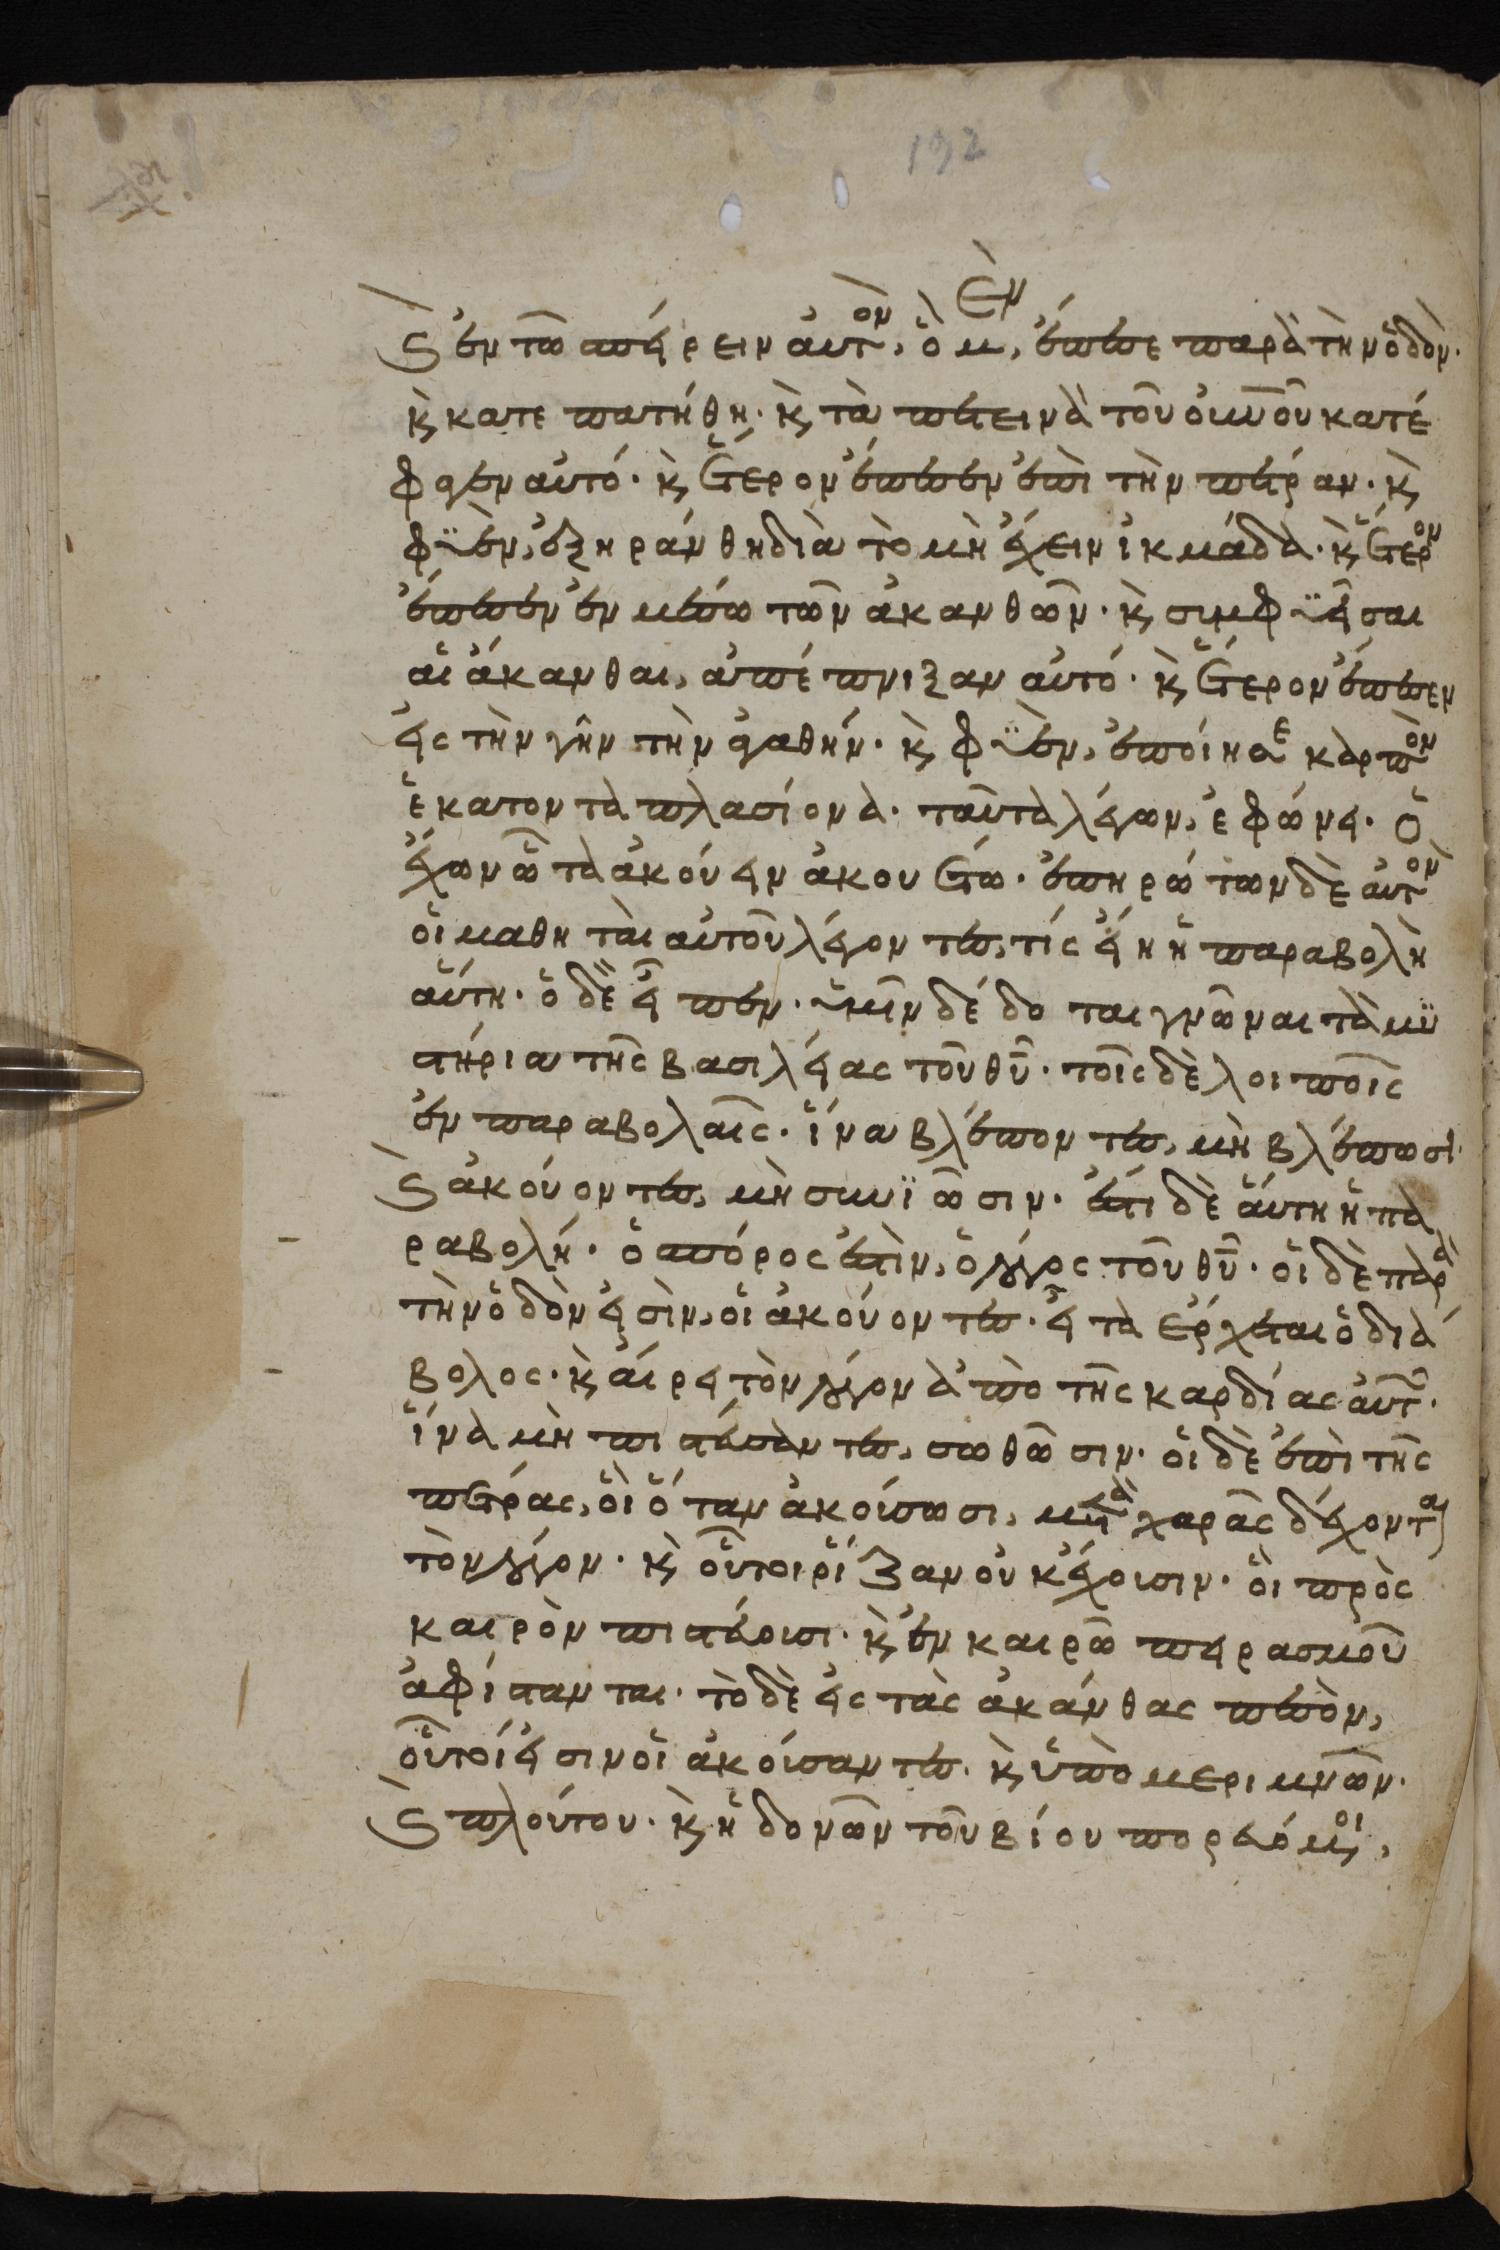 192
ἐν
κ̀ ἐν τῶ σπείρειν αὐτὸν, ὃ μ, ἔπεσε παρὰ τὴν ὁδὸν·
κ̀ κατεπατήθη· κ̀ τὰ πετεινὰ τοῦ οὐνοῦ κατέ
φαγεν αὐτό· κ̀ ἕτερον ἔπεσεν ἐπὶ τὴν πέτραν· κ̀
φϋὲν, ἐξηράνθη διὰ τὸ μὴ ἔχειν ἰκμάδα· κ̀ ἕτερον
ἔπεσεν ἐν μέσω τῶν ἀκανθῶν· κ̀ συμφϋεῖσαι
αἱ ἄκανθαι, ἀπέπνιξαν αὐτό· κ̀ ἕτερον ἔπεσεν
εἰς τὴν γῆν τὴν ἀγαθήν· κ̀ φϋὲν, ἐποίησε καρπὸν
ἑκατονταπλασίονα· ταῦτα λέγων, ἐφώνει· ὁ
ἔχων ὦτα ἀκούειν ἀκουέτω· ἐπηρώτων δὲ αὐτὸν
οἱ μαθηταὶ αὐτοῦ λέγοντες, τίς εἴη ἡ παραβολὴ
αὕτη· ὁ δὲ εἶπεν· ὑμῖν δέδοται γνῶναι τὰ μϋ
στήρια τῆς βασιλείας τοῦ θῦ· τοῖς δὲ λοιποῖς
ἐν παραβολαῖς· ἵνα βλέποντες, μὴ βλέπωσι·
κ̀ ἀκούοντες, μὴ συνϊῶσιν· ἔστι δὲ αὕτη ἡ πα
ραβολή· ὁ σπόρος ἐστὶν, ὁ λόγος τοῦ θῦ· οἱ δὲ παρὰ
τὴν ὁδὸν εἰσὶν, οἱ ἀκούοντες· εἶτα ἔρχεται ὁ διά
βολος· κ̀ αἴρει τὸν λόγον ἀπὸ τῆς καρδίας αὐτῶν·
ἵνα μὴ πιστεύσαντες, σωθῶσιν· οἱ δὲ ἐπὶ τῆς
πέτρας, οἳ ὅταν ἀκούσωσι, μετὰ χαρᾶς δέχονται
τὸν λόγον· κ̀ οὗτοι ῥίζαν οὐκ ἔχουσιν· οἳ πρὸς
καιρὸν πιστεύουσι· κ̀ ἐν καιρῶ πειρασμοῦ
ἀφίστανται· τὸ δὲ εἰς τὰς ἀκάνθας πεσὸν,
οὗτοί εἰσιν οἱ ἀκούσαντες· κ̀ ὑπὸ μεριμνῶν·
κ̀ πλούτου· κ̀ ἡδονῶν τοῦ βίου πορευόμενοι,